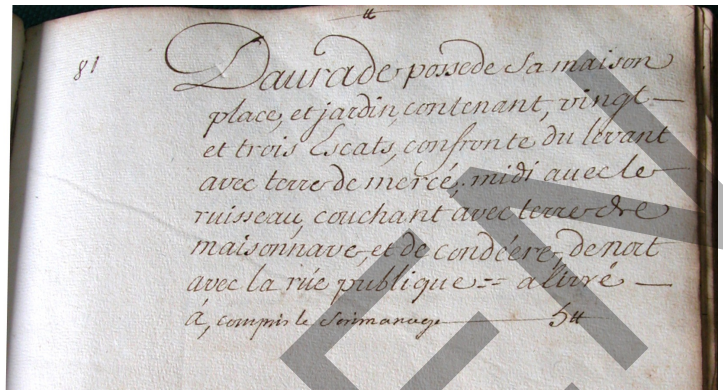 tt
81
Daurade possede Sa maison
place, et jardin, contenant, vingt
et trois Escats, confronte du levant
avec terre de mercé, midi avec le
ruisseau, couchant avec terre de
maisonnave, et de condéere, de nort
avec la rüe publique == alivré
á, compris le 5tt